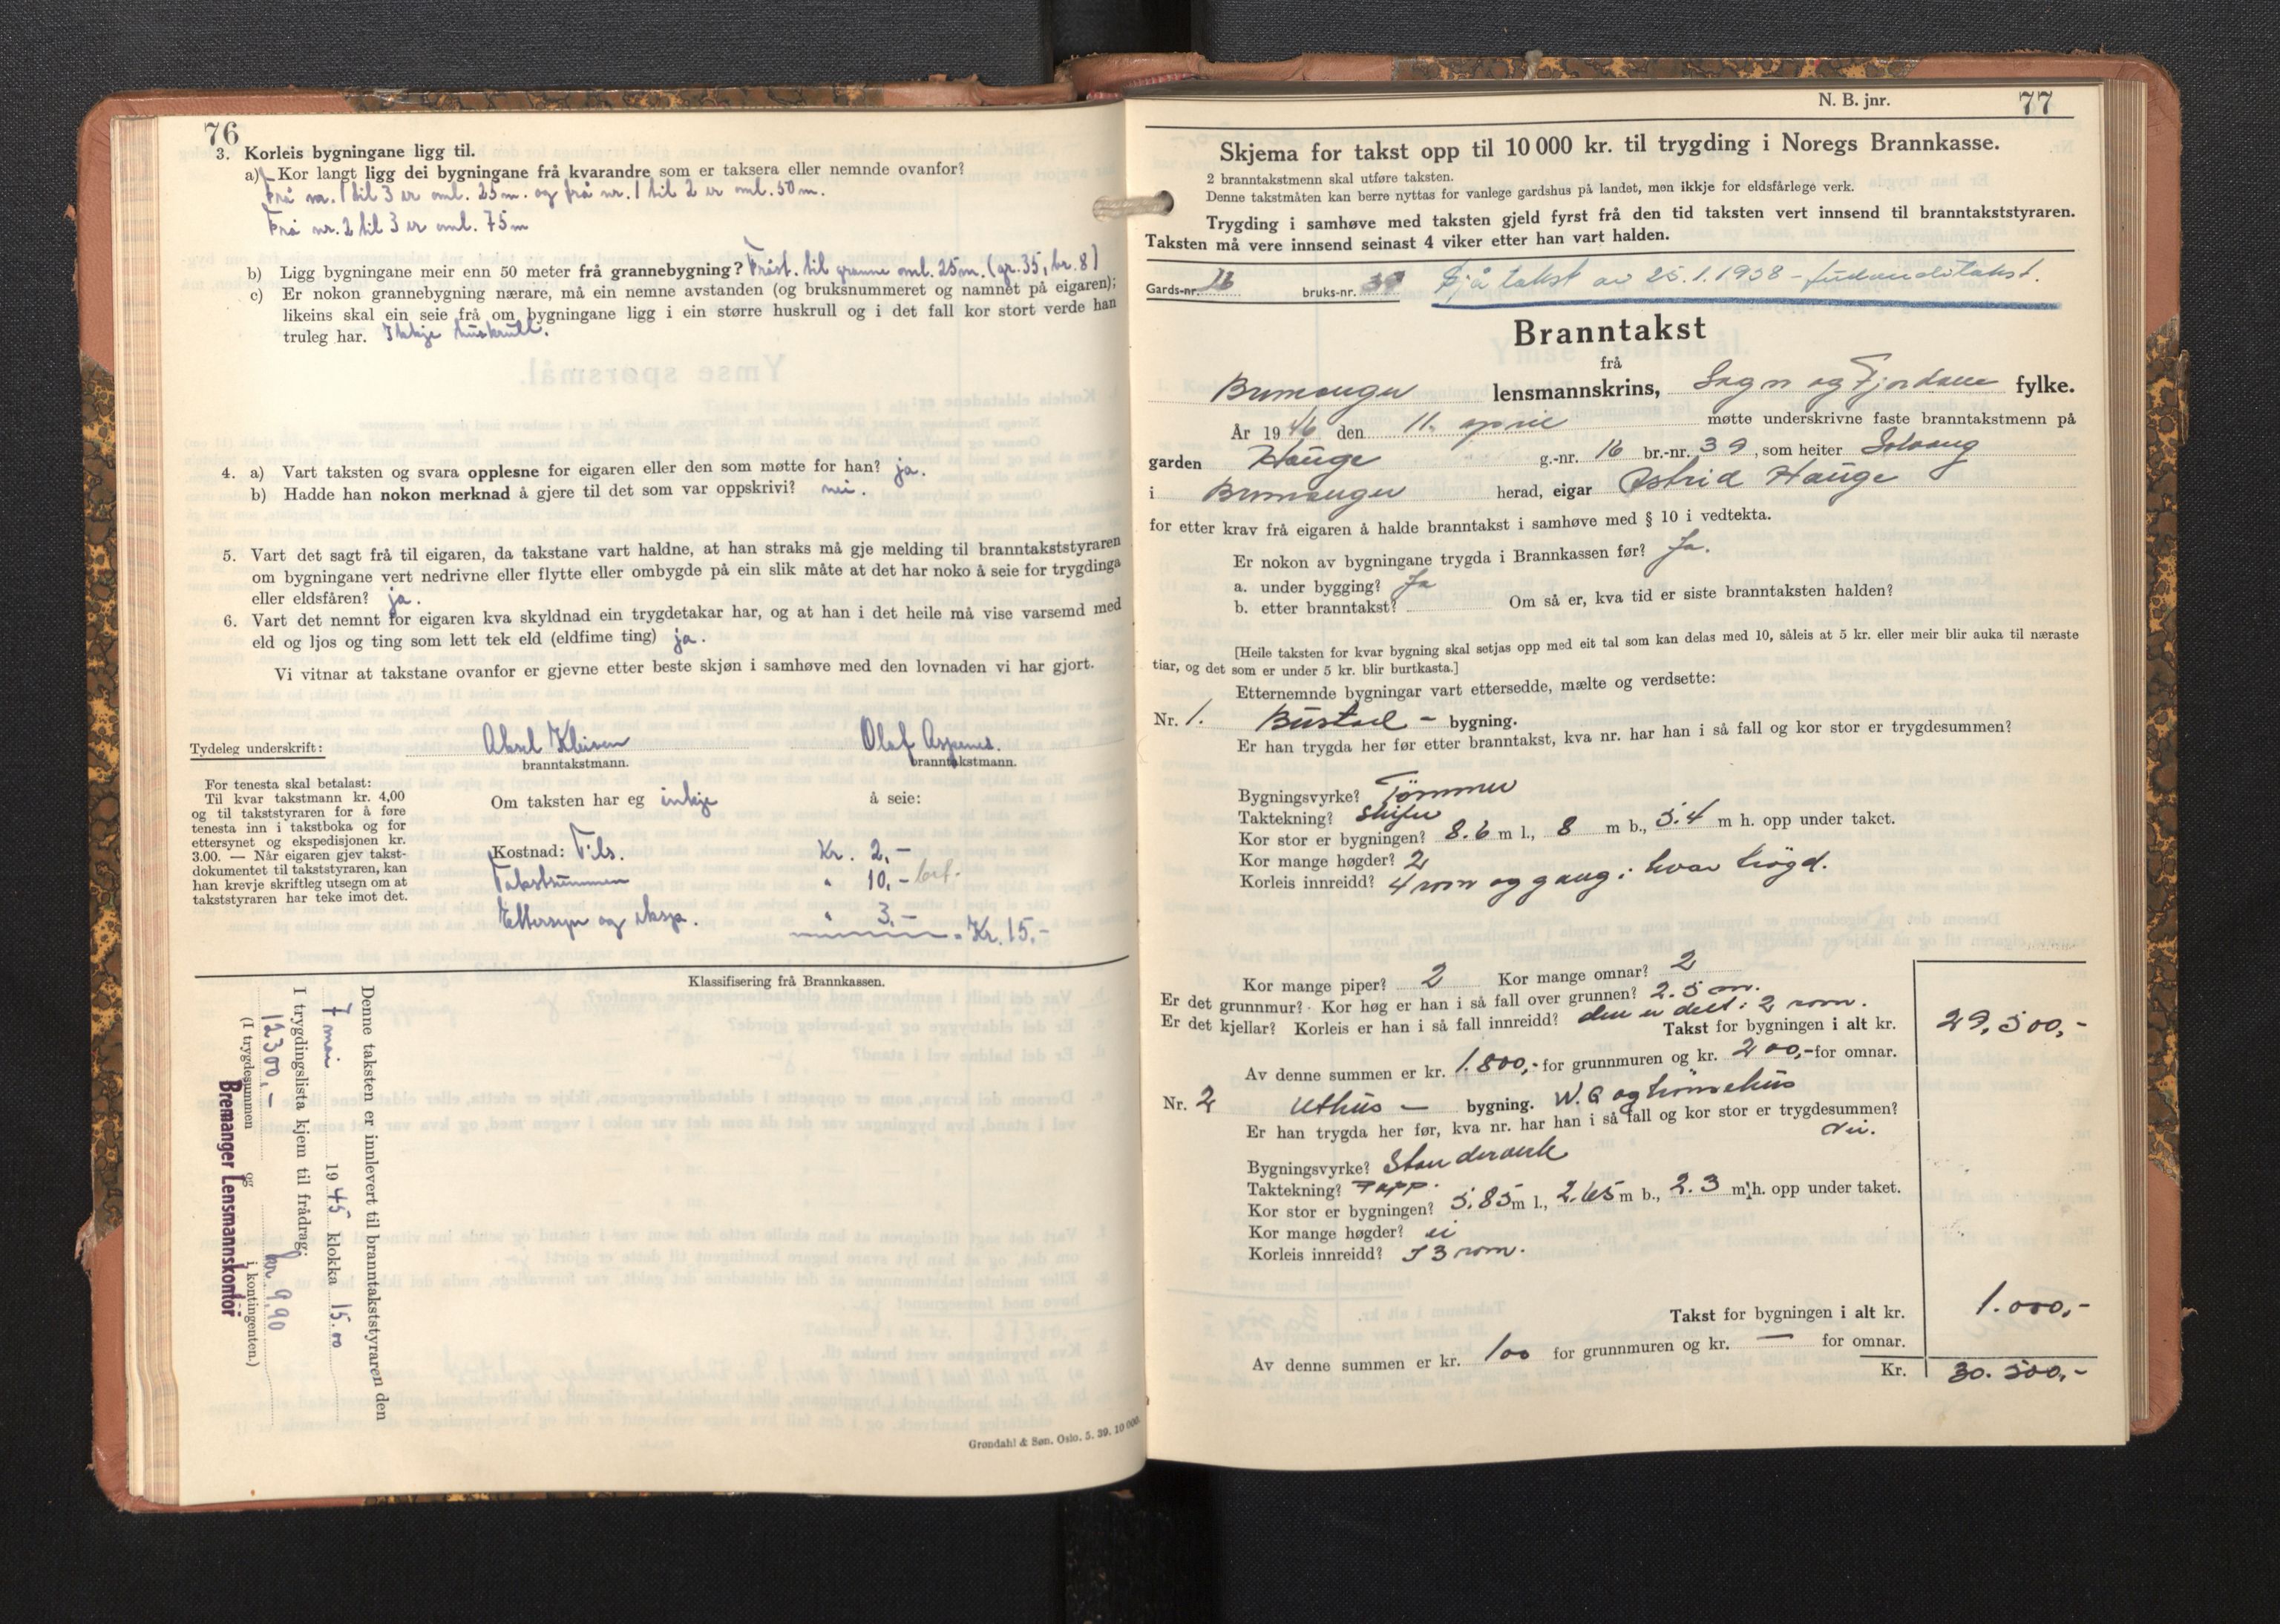 76
3. Korleis bygningane ligg til.
a) Kor langt ligg dei bygningane frå kvarandre som er taksera eller nemnde ovanfor?
Frå nr. 1 til 3 er oml. 25 m. og frå nr. 1 til 2 er oml. 50 m.
Frå nr. 2 til 3 er oml. 75 m
b) Ligg bygningane meir enn 50 meter frå grannebygning? Avst. til granne oml. 25 m. (gr. 35, br. 8)
c) Er nokon grannebygning nærare, må ein nemne avstanden (og bruksnummeret og namnet på eigaren);
likeins skal ein seie frå om bygningane ligg i ein større huskrull og i det fall kor stort verde han
truleg har. Ikkje huskrull.
4. a) Vart taksten og svara opplesne for eigaren eller den som møtte for han? ja.
b) Hadde han nokon merknad å gjere til det som var oppskrivi? nei.
5. Vart det sagt frå til eigaren, da takstane vart haldne, at han straks må gje melding til branntakststyraren
om bygningane vert nedrivne eller flytte eller ombygde på ein slik måte at det har noko å seie for trygdinga
eller eldsfåren? ja.
6. Vart det nemnt for eigaren kva skyldnad ein trygdetakar har, og at han i det heile må vise varsemd med
eld og ljos og ting som lett tek eld (eldfime ting) ja.
Vi vitnar at takstane ovanfor er gjevne etter beste skjøn i samhøve med den lovnaden vi har gjort.
Tydeleg underskrift: Aksel Kleiven Olaf Aspenes.
branntakstmann. branntakstmann.
For tenesta skal betalast:
Til kvar takstmann kr. 4,00
og til takststyraren for å føre
tenesta inn i takstboka og for
ettersynet og ekspedisjonen kr.
3.00. — Når eigaren gjev takst-
dokumentet til takststyraren, kan
han krevje skriftleg utsegn om at
takststyraren har teke imot det.
Om taksten har eg inkje å seie:
Kostnad: Tils. Kr. 2,-
Takstsummen " 10,-
Ettersyn og eksp. " 3,-
Kr. 15,-
Klassifisering frå Brannkassen.
Denne taksten er innlevert til branntakststyraren den
7 mai 1945 klokka 15.00
I trygdingslista kjem til frådrag:
12300,- kr. 9,90
(I trygdesummen og i kontingenten.)
Bremanger Lensmannskontor
Grøndahl & Søn, Oslo. 5. 39. 10 000.
N. B. jnr. 77
Skjema for takst opp til 10 000 kr. til trygding i Noregs Brannkasse.
2 branntakstmenn skal utføre taksten.
Denne takstmåten kan berre nyttas for vanlege gardshus på landet, men ikkje for eldsfårlege verk.
Trygding i samhøve med taksten gjeld fyrst frå den tid taksten vert innsend til branntakststyraren.
Taksten må vere innsend seinast 4 viker etter han vart halden.
Gards-nr. 16 bruks-nr. 39 Sjå takst av 25.1.1958 -
Branntakst
frå
Bremanger lensmannskrins, Sogn og Fjordane fylke.
År 1946 den 11. april møtte underskrivne faste branntakstmenn på
garden Hauge g.-nr. 16 br.-nr. 39, som heiter Solvang
i Bremanger herad, eigar Astrid Hauge
for etter krav frå eigaren å halde branntakst i samhøve med § 10 i vedtekta.
Er nokon av bygningane trygda i Brannkassen før? Ja.
a. under bygging? Ja
b. etter branntakst? Om så er, kva tid er siste branntaksten halden?
[Heile taksten for kvar bygning skal setjas opp med eit tal som kan delas med 10, såleis at 5 kr. eller meir blir auka til næraste
tiar, og det som er under 5 kr. blir burtkasta.]
Etternemnde bygningar vart ettersedde, mælte og verdsette:
Nr. 1. Bustad - bygning.
Er han trygda her før etter branntakst, kva nr. har han i så fall og kor stor er trygdesummen?
Bygningsvyrke? Tømmer
Taktekning? Skifer
Kor stor er bygningen? 8.6 m l., 8 m b., 5.4 m h. opp under taket.
Kor mange høgder? 2
Korleis innreidd? 4 rom og gang i kvar høgd.
Kor mange piper? 2 Kor mange omnar? 2
Er det grunnmur? Kor høg er han i så fall over grunnen? 2.5 m.
Er det kjellar? Korleis er han i så fall innreidd? den er delt i 2 rom.
Takst for bygningen i alt kr. 29,500,-
Av denne summen er kr. 1.800,- for grunnmuren og kr. 200,- for omnar.
Nr. 2 Uthus — bygning. W.C. og hønsehus
Er han trygda her før, kva nr. har han i så fall og kor stor er trygdesummen?
Nei.
Bygningsvyrke? Stenderverk
Taktekning? Papp.
Kor stor er bygningen? 5.85 m l., 2.65 m b., 2.3 m h. opp under taket.
Kor mange høgder? ei
Korleis innreidd? I 3 rom.
Takst for bygningen i alt kr. 1.000,-
Av denne summen er kr. 100 for grunnmuren og kr. — for omnar.
Kr. 30.500,-